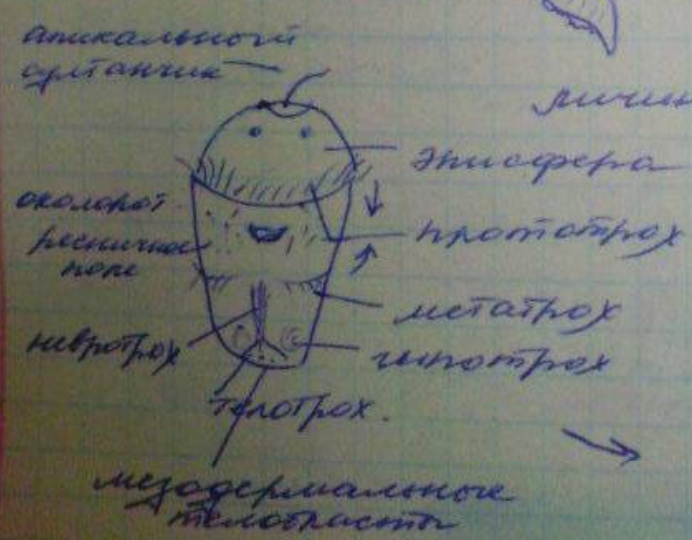 апикальный
султанчик
личин
эписфера
околорот.
ресничное
поле
прототрох
метатрох
невротрох
гипотрох
телотрох.
мезодермальные
телобласты